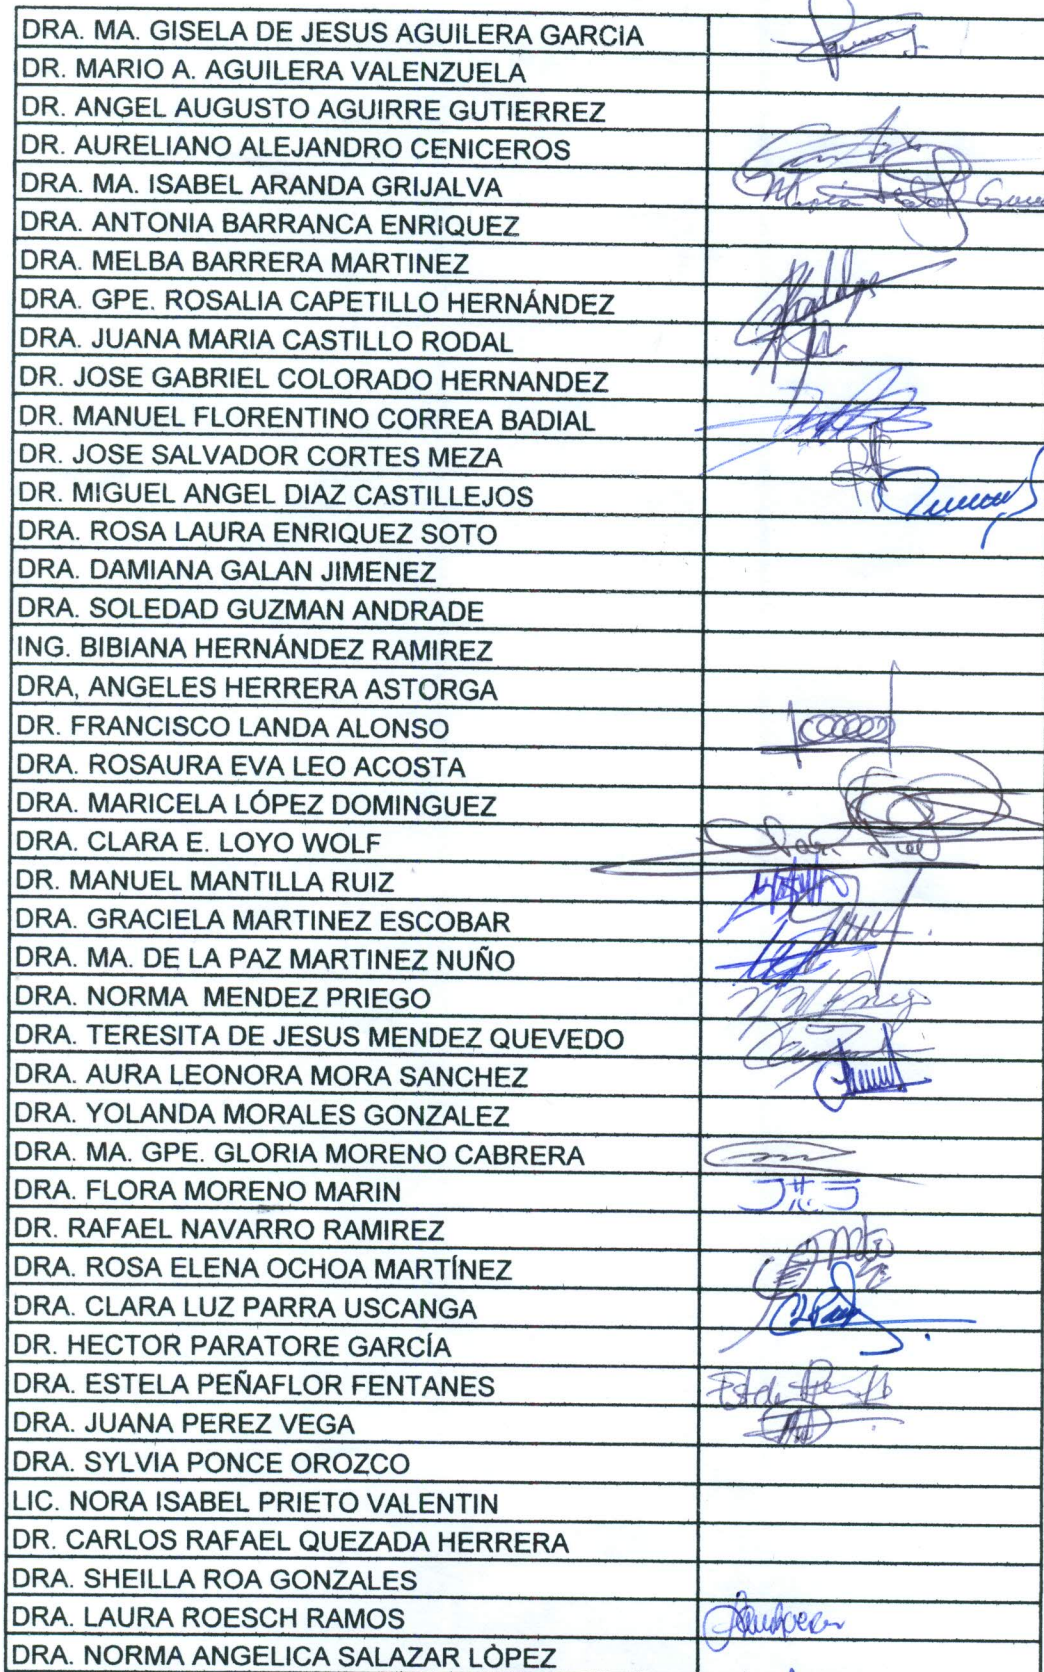 DRA. MA. GISELA DE JESUS AGUILERA GARCIA
DR. MARIO A. AGUILERA VALENZUELA
DR. ANGEL AUGUSTO AGUIRRE GUTIERREZ
DR. AURELIANO ALEJANDRO CENICEROS
DRA. MA. ISABEL ARANDA GRIJALVA
DRA. ANTONIA BARRANCA ENRIQUEZ
DRA. MELBA BARRERA MARTINEZ
DRA. GPE. ROSALIA CAPETILLO HERNÁNDEZ
DRA. JUANA MARIA CASTILLO RODAL
DR. JOSE GABRIEL COLORADO HERNANDEZ
DR. MANUEL FLORENTINO CORREA BADIAL
DR. JOSE SALVADOR CORTES MEZA
DR. MIGUEL ANGEL DIAZ CASTILLEJOS
DRA. ROSA LAURA ENRIQUEZ SOTO
DRA. DAMIANA GALAN JIMENEZ
DRA. SOLEDAD GUZMAN ANDRADE
ING. BIBIANA HERNÁNDEZ RAMIREZ
DRA, ANGELES HERRERA ASTORGA
DR. FRANCISCO LANDA ALONSO
DRA. ROSAURA EVA LEO ACOSTA
DRA. MARICELA LÓPEZ DOMINGUEZ
DRA. CLARA E. LOYO WOLF
DR. MANUEL MANTILLA RUIZ
DRA. GRACIELA MARTINEZ ESCOBAR
DRA. MA. DE LA PAZ MARTINEZ NUÑO
DRA. NORMA MENDEZ PRIEGO
DRA. TERESITA DE JESUS MENDEZ QUEVEDO
DRA. AURA LEONORA MORA SANCHEZ
DRA. YOLANDA MORALES GONZALEZ
DRA. MA. GPE. GLORIA MORENO CABRERA
DRA. FLORA MORENO MARIN
DR. RAFAEL NAVARRO RAMIREZ
DRA. ROSA ELENA OCHOA MARTÍNEZ
DRA. CLARA LUZ PARRA USCANGA
DR. HECTOR PARATORE GARCÍA
DRA. ESTELA PEÑAFLOR FENTANES
DRA. JUANA PEREZ VEGA
DRA. SYLVIA PONCE OROZCO
LIC. NORA ISABEL PRIETO VALENTIN
DR. CARLOS RAFAEL QUEZADA HERRERA
DRA. SHEILLA ROA GONZALES
DRA. LAURA ROESCH RAMOS
DRA. NORMA ANGELICA SALAZAR LÒPEZ